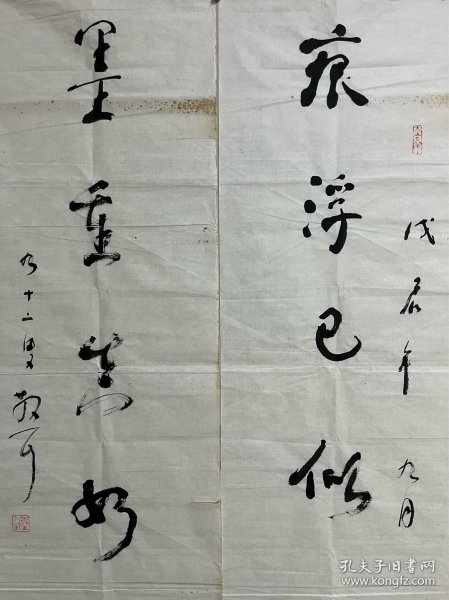 戊辰年九月
痕浮已似
墨重如
九十二叟散耳
孔夫子旧书网
www.kongfz.com